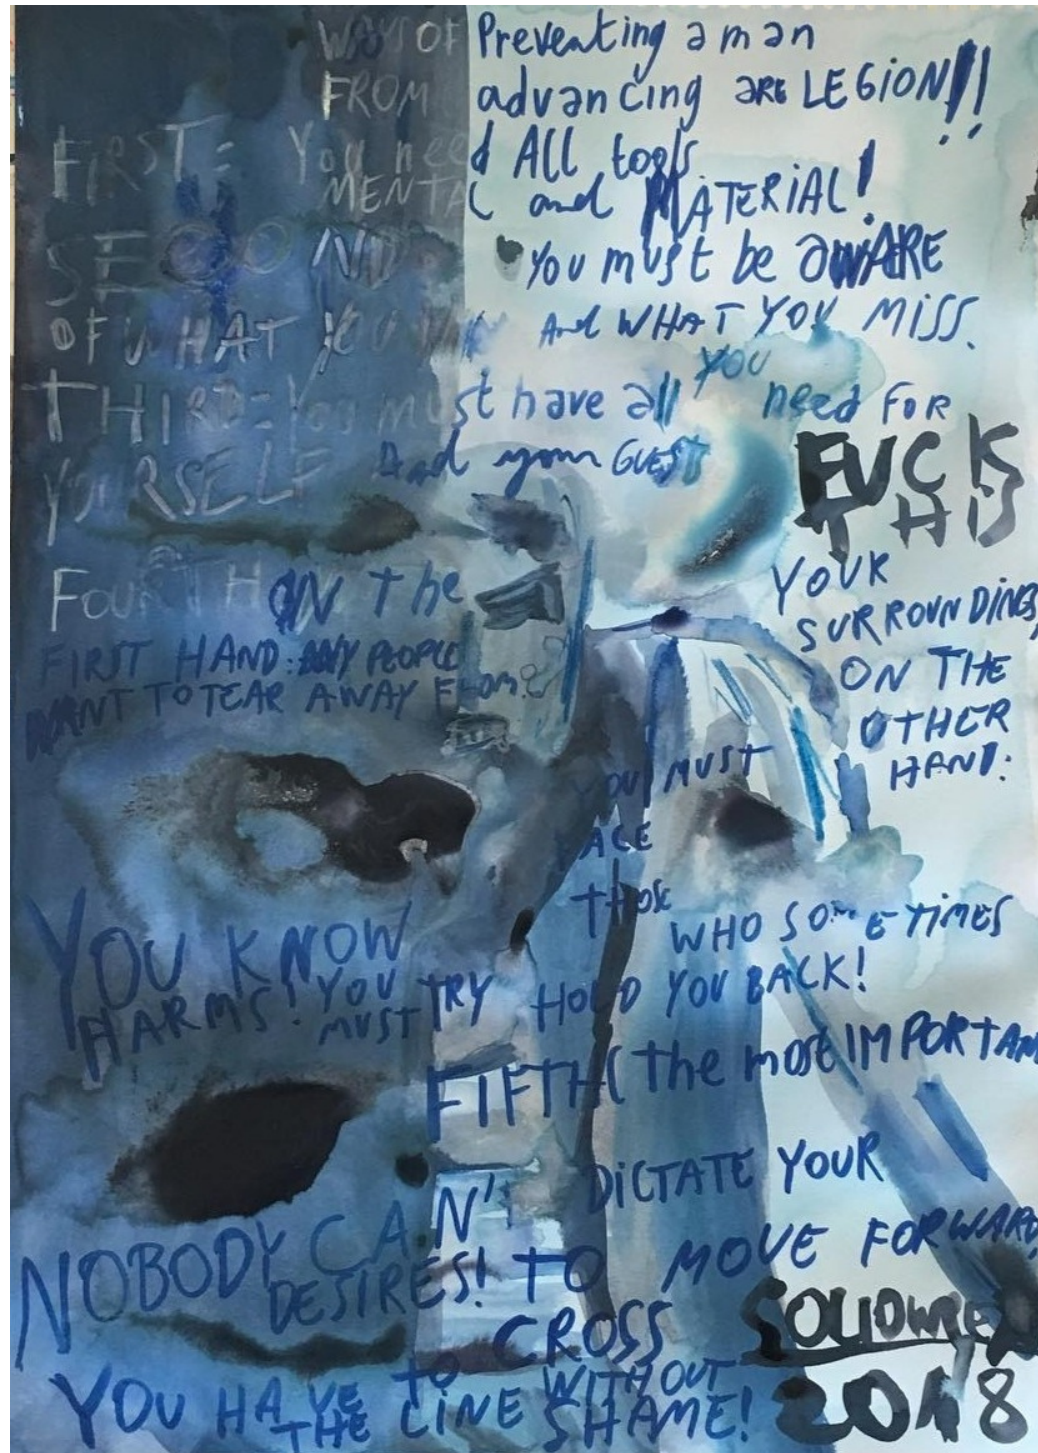 WAYS OF Preventing a man
FROM advancing ARE LEGION!!
FIRST: You need All tools
MENTAL and MATERIAL!
SECOND You must be AWARE
OF WHAT YOU And WHAT YOU MISS.
THIRD: You must have all YOU need FOR
YOURSELF And your GUEST
FUCK
THIS
FOURTH ON the
FIRST HAND: ANY PEOPLE
WANT TO TEAR AWAY From
YOUR
SURROUNDINGS,
ON THE
OTHER
HAND:
YOU MUST
FACE
THOSE
WHO SOMETIMES
HOLD YOU BACK!
YOU KNOW
HARMS! YOU MUST TRY
FIFTH (the most IMPORTAN
NOBODY CAN'T DICTATE YOUR
DESIRES! TO MOVE FORWARD,
YOU HAVE TO CROSS
THE LINE WITHOUT
SHAME!
2018